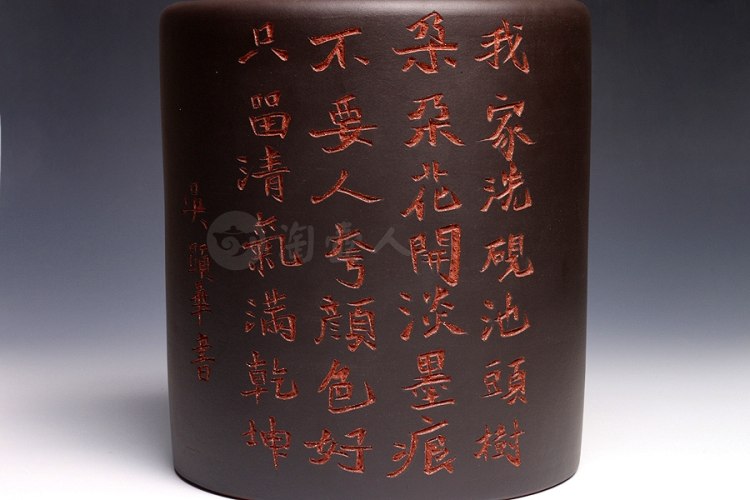 我家洗硯池頭樹
朵朵花開淡墨痕
不要人夸顔色好
只留清氣滿乾坤
吳顕章書
淘壶人